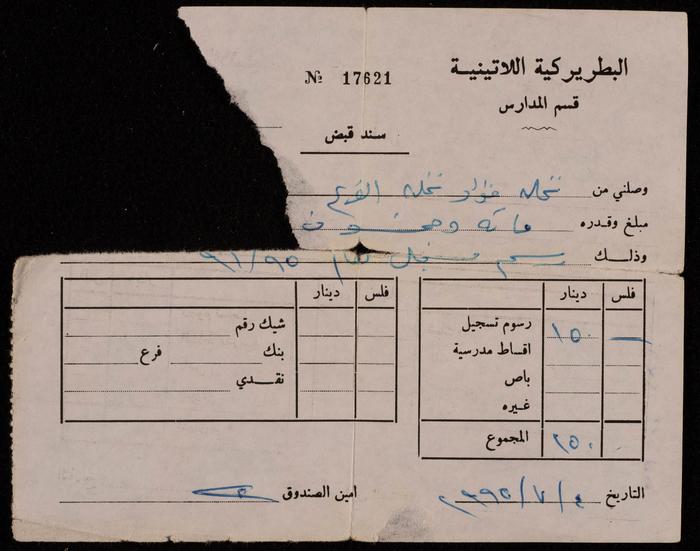 البطريركية اللاتينية
قسم المدارس
№ 17621
سند قبض
وصلني من نخله فؤاد نخله
مبلغ وقدره مائة وخمسون
وذلك رسم تسجيل
فلس دينار
رسوم تسجيل ١٥٠ —
اقساط مدرسية
باص
غيره
المجموع
فلس دينار
شيك رقم
بنك فرع
نقدي
التاريخ
امين الصندوق